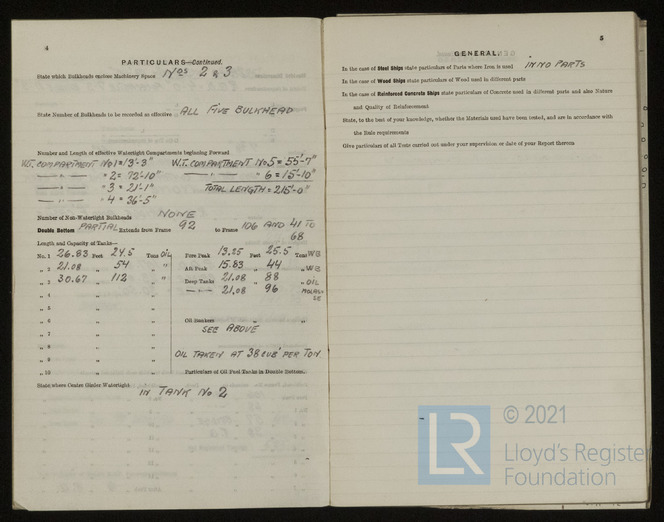 4
PARTICULARS—Continued.
State which Bulkheads enclose Machinery Space Nos 2 & 3
State Number of Bulkheads to be recorded as effective ALL FIVE BULKHEAD
Number and Length of effective Watertight Compartments beginning Forward
W.T. COMPARTMENT No 1 = 13'-3" W.T. COMPARTMENT No 5 = 55'-7"
" 2 = 72'-10" " 6 = 15'-10"
" 3 = 21'-1" TOTAL LENGTH = 215'-0"
" 4 = 36'-5"
Number of Non-Watertight Bulkheads NONE
Double Bottom PARTIAL Extends from Frame 92 to Frame 106 AND 41 TO 68
Length and Capacity of Tanks—
No. 1 26.83 Feet 24.5 Tons OIL Fore Peak 13.25 Feet 25.5 Tons WB
" 2 21.08 " 54 " " Aft Peak 15.83 " 44 " WB
" 3 30.67 " 112 " " Deep Tanks 21.08 " 88 " OIL
" 4 " " 21.08 96 MOLASSE
" 5 " "
" 6 " " Oil Bunkers " "
" 7 " " SEE ABOVE
" 8 " "
" 9 " " OIL TAKEN AT 38 CUB' PER TON
" 10 " " Particulars of Oil Fuel Tanks in Double Bottom.
State where Center Girder Watertight IN TANK No 2
5
GENERAL.
In the case of Steel Ships state particulars of Parts where Iron is used IN NO PARTS
In the case of Wood Ships state particulars of Wood used in different parts
In the case of Reinforced Concrete Ships state particulars of Concrete used in different parts and also Nature
and Quality of Reinforcement
State, to the best of your knowledge, whether the Materials used have been tested, and are in accordance with
the Rule requirements
Give particulars of all Tests carried out under your supervision or date of your Report thereon
LR
© 2021
Lloyd's Register
Foundation